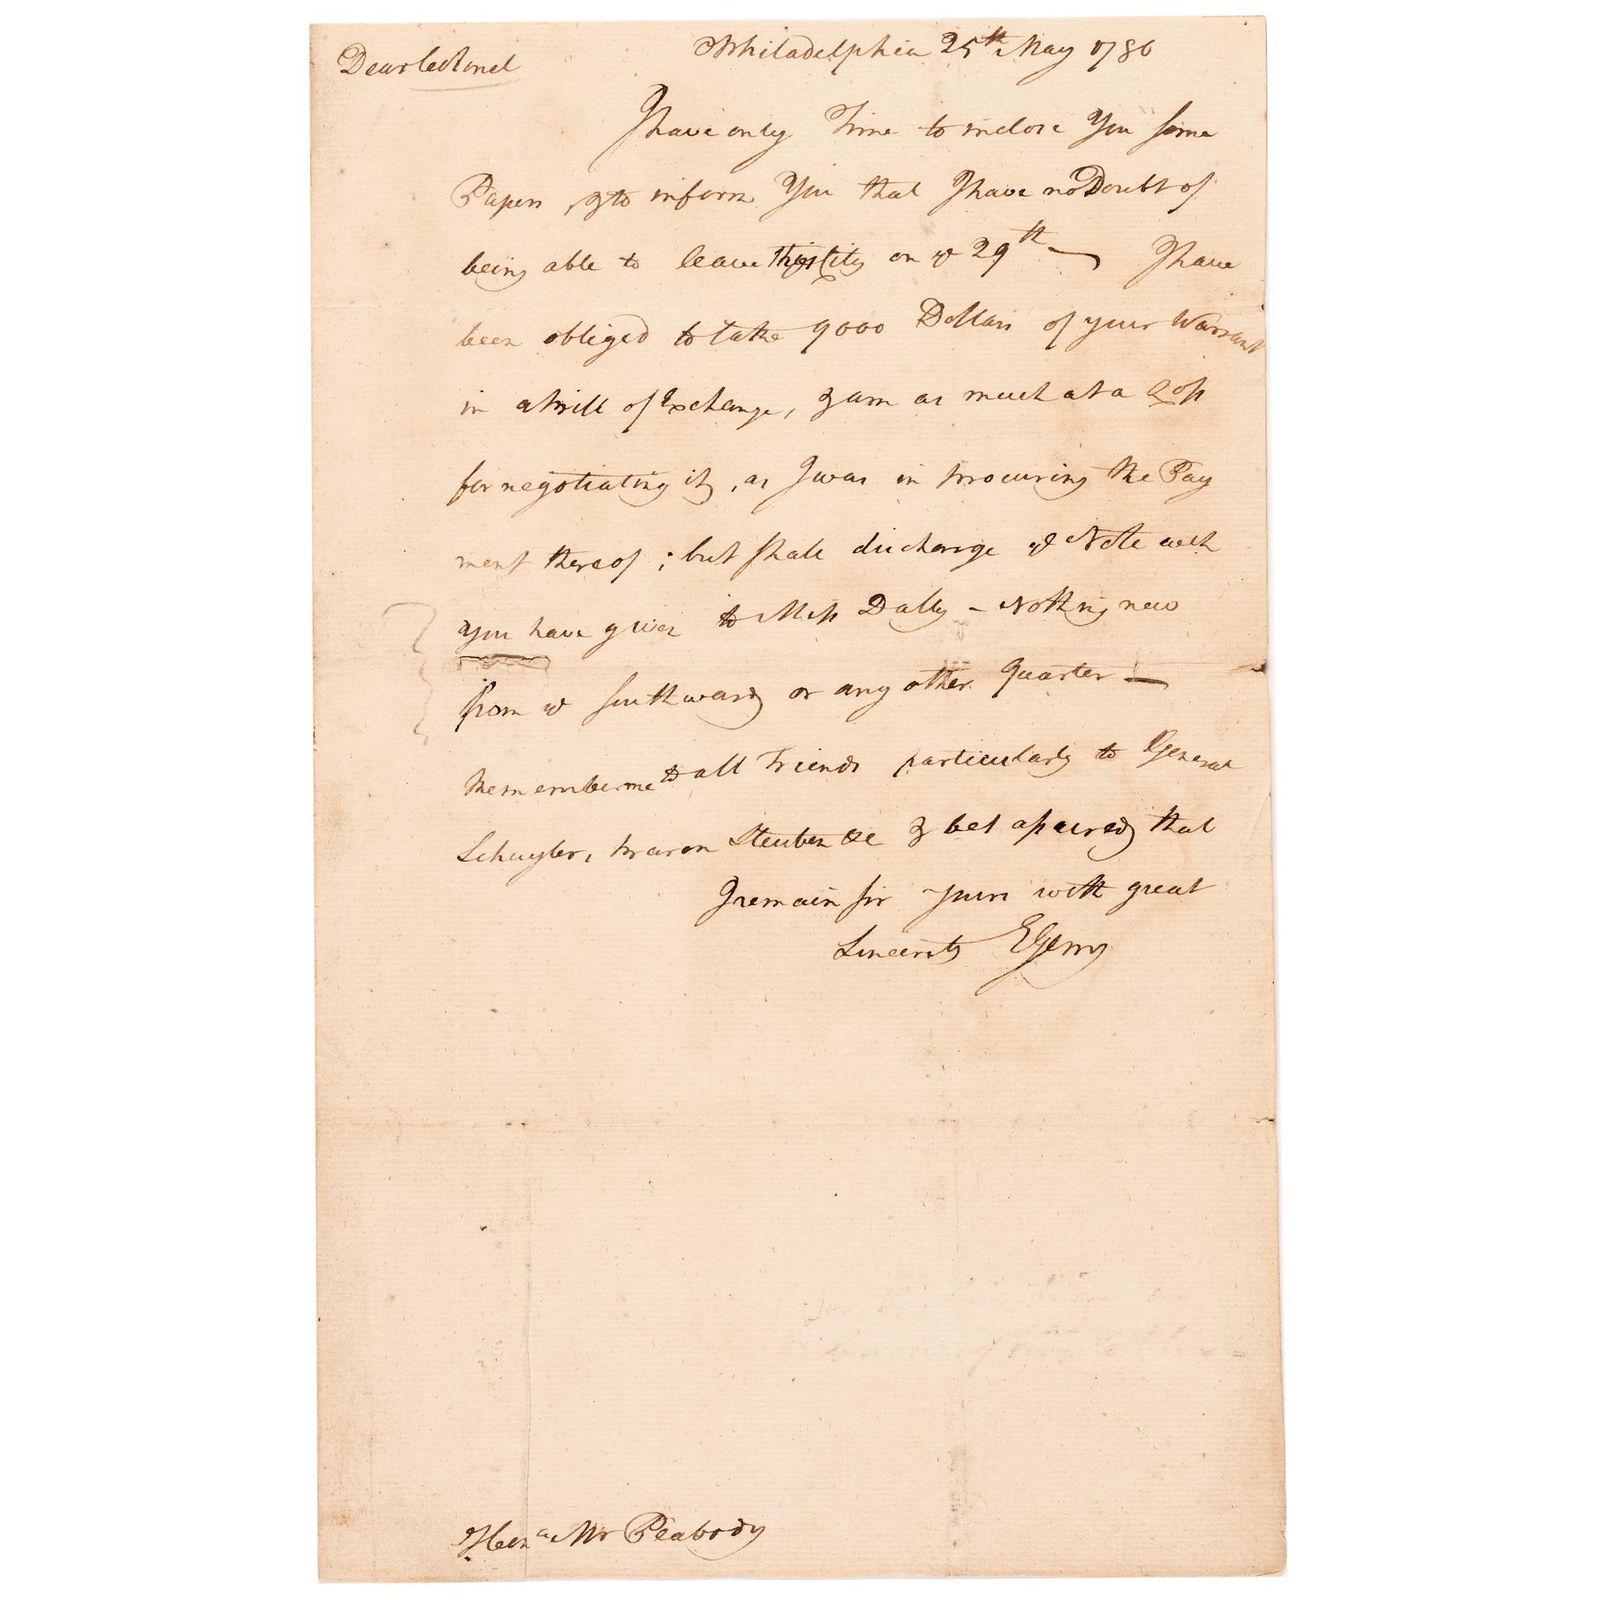 Dear Colonel
Philadelphia 25th May 1780
I have only Time to inclose You some
Papers, & to inform You that I have no Doubt of
being able to leave this City on ye 29th — I have
been obliged to take 9000 Dollars of your Warrant
in a Bill of Exchange, & am as much at a Loss
for negotiating it, as I was in procuring the Pay
ment thereof; but shall discharge ye Note wch
you have given to Miss Dally - Nothing new
from ye Southward or any other Quarter —
Remember me to all Friends particularly to General
Schuyler, Baron Steuben &c & be assured that
I remain sir yours with great
Sincerity E Gerry
Honl Mr Peabody